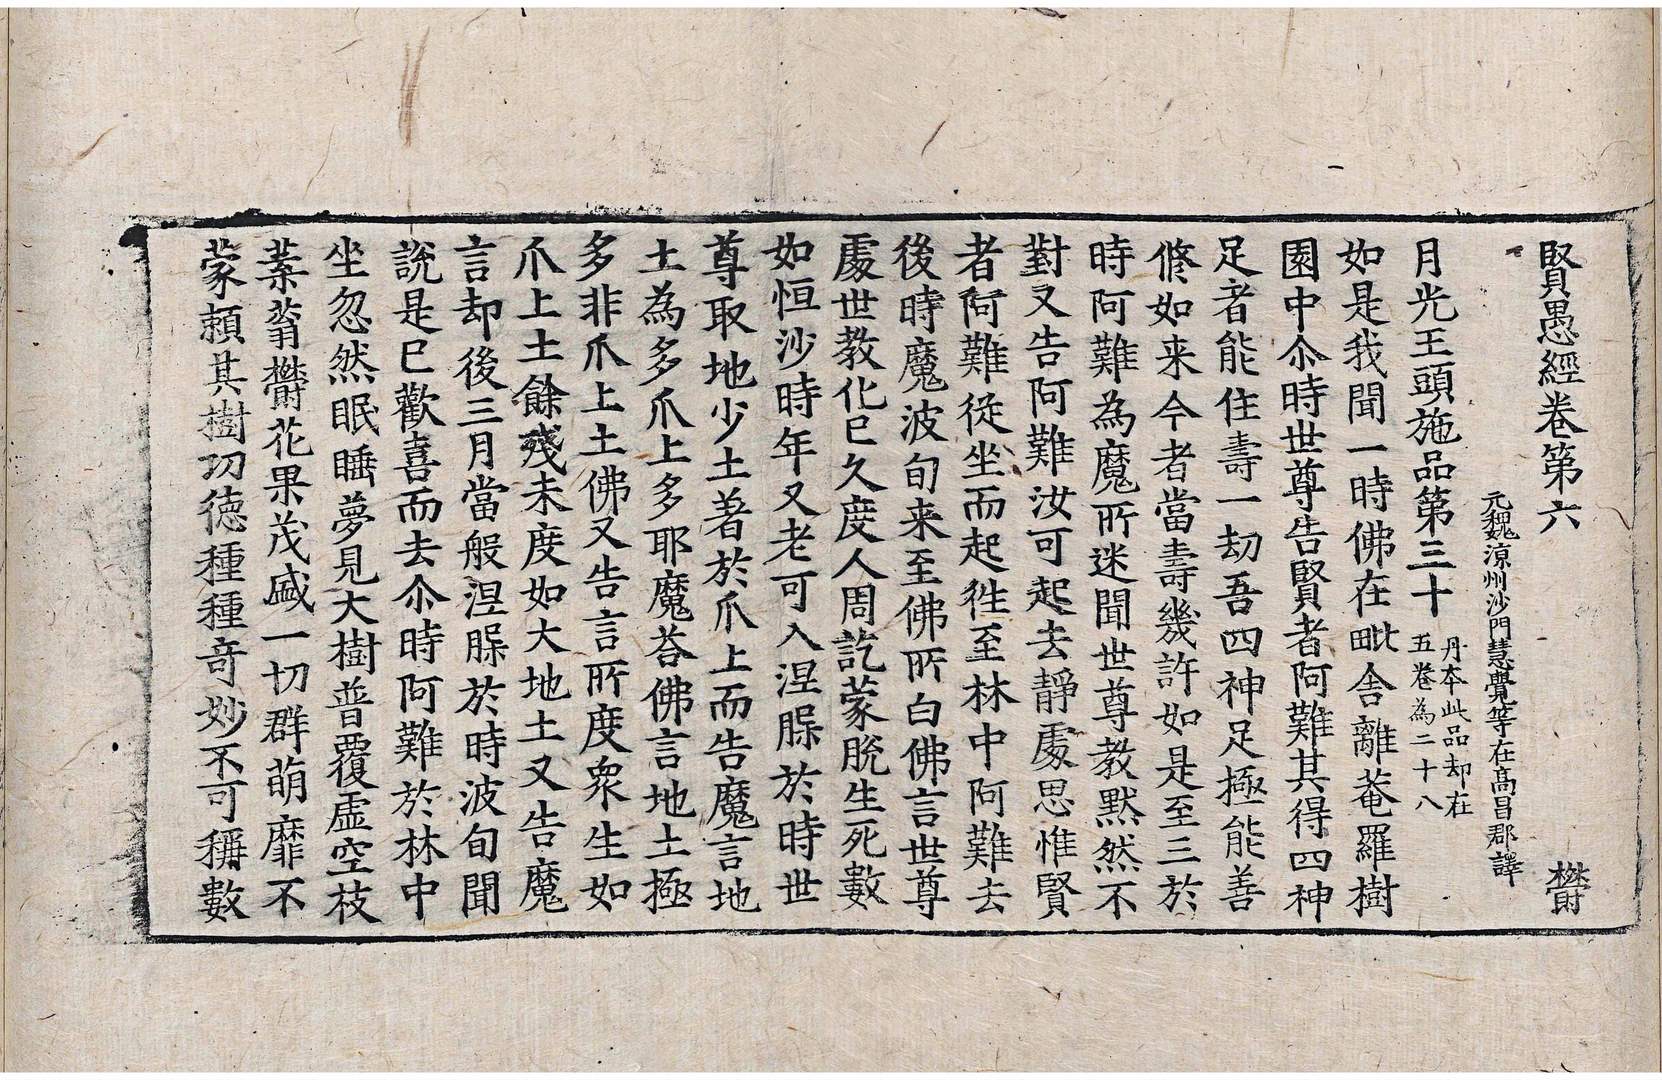 賢愚經卷第六 欝
元魏涼州沙門慧覺等在高昌郡譯
月光王頭施品第三十 丹本此品却在
五卷為二十八
如是我聞一時佛在毗舍離菴羅樹
園中尒時世尊告賢者阿難其得四神
足者能住壽一劫吾四神足極能善
脩如来今者當壽幾許如是至三於
時阿難為魔所迷聞世尊教默然不
對又告阿難汝可起去靜處思惟賢
者阿難從坐而起徃至林中阿難去
後時魔波旬来至佛所白佛言世尊
處世教化已久度人周訖蒙脫生死數
如恒沙時年又老可入涅槃於時世
尊取地少土著於爪上而告魔言地
土為多爪上多耶魔荅佛言地土極
多非爪上土佛又告言所度衆生如
爪上土餘殘未度如大地土又告魔
言却後三月當般涅槃於時波旬聞
說是已歡喜而去尒時阿難於林中
坐忽然眠睡夢見大樹普覆虛空枝
葉蓊欝花果茂盛一切群萌靡不
蒙頼其樹功徳種種竒妙不可稱數